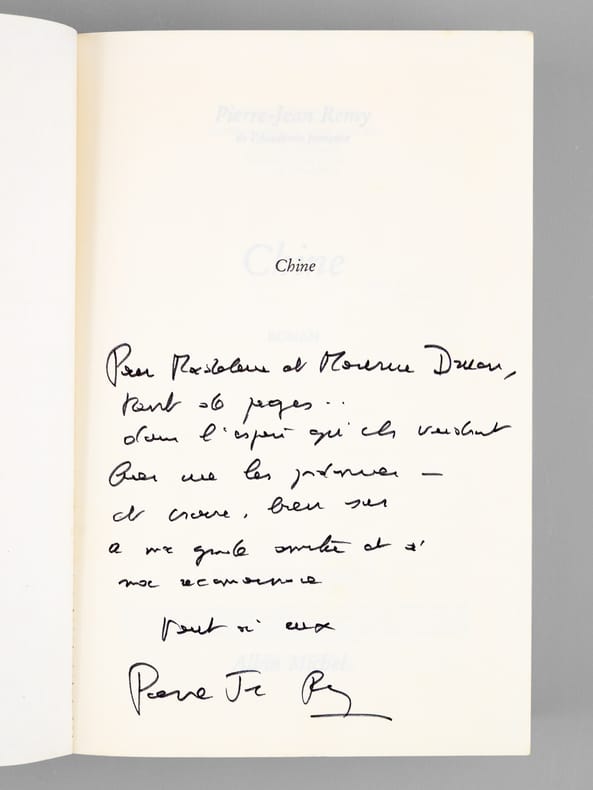 Pierre-Jean Remy
de l'Académie française
Chine
Chine
ROMAN
Pour Madeleine et Maurice Druon,
tant de pages..
dans l'espoir qu'ils veuillent
bien me les pardonner —
et croire, bien sûr
à ma grande amitié et à
ma reconnaissance
Tout à eux
Albin Michel
Pierre Jn Remy